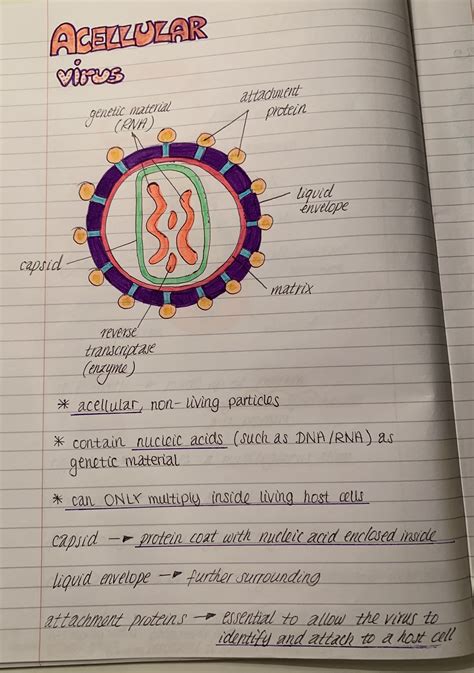 ACELLULAR
virus
genetic material
(RNA)
attachment
protein
liquid
envelope
capsid
matrix
reverse
transcriptase
(enzyme)
* acellular, non-living particles
* contain nucleic acids (such as DNA/RNA) as
genetic material
* can ONLY multiply inside living host cells
capsid → protein coat with nucleic acid enclosed inside
liquid envelope → further surrounding
attachment proteins → essential to allow the virus to
identify and attach to a host cell